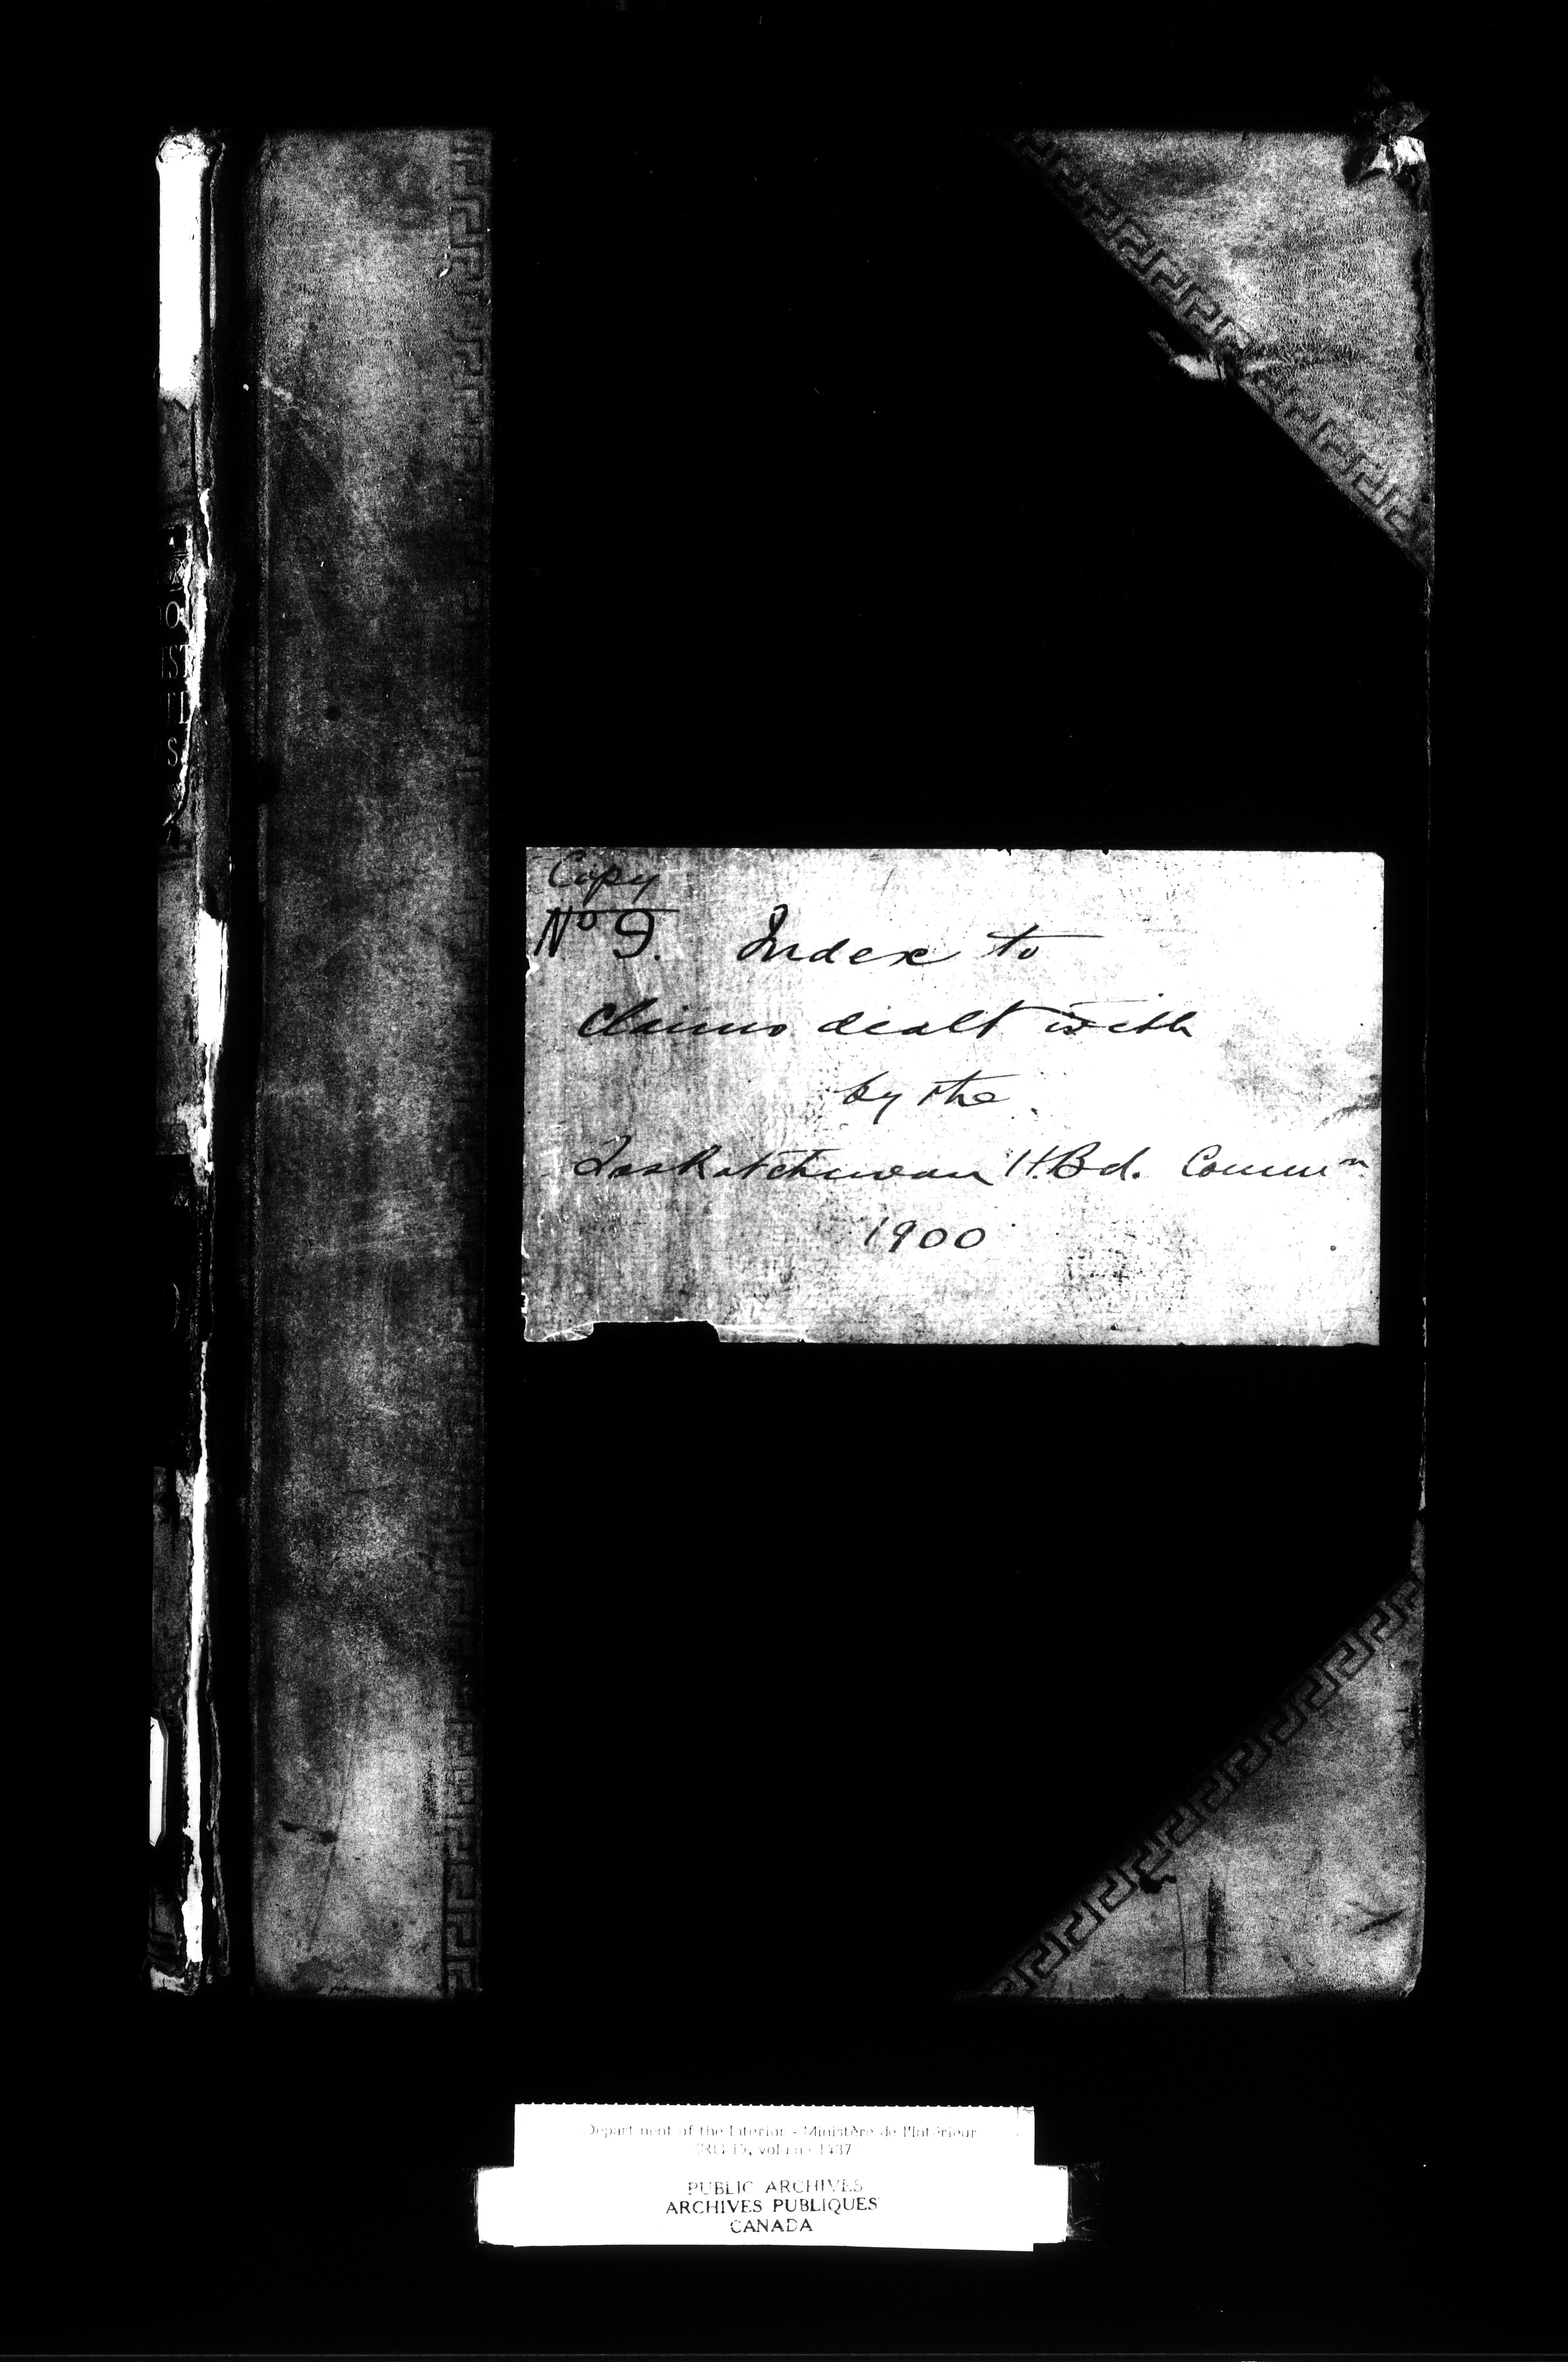 Copy
No 9. Index to
Claims dealt with
by the
Saskatchewan H.Bd. Commn
1900
Department of the Interior - Ministère de l'Intérieur
(RG 15, volume 1487
PUBLIC ARCHIVES
ARCHIVES PUBLIQUES
CANADA